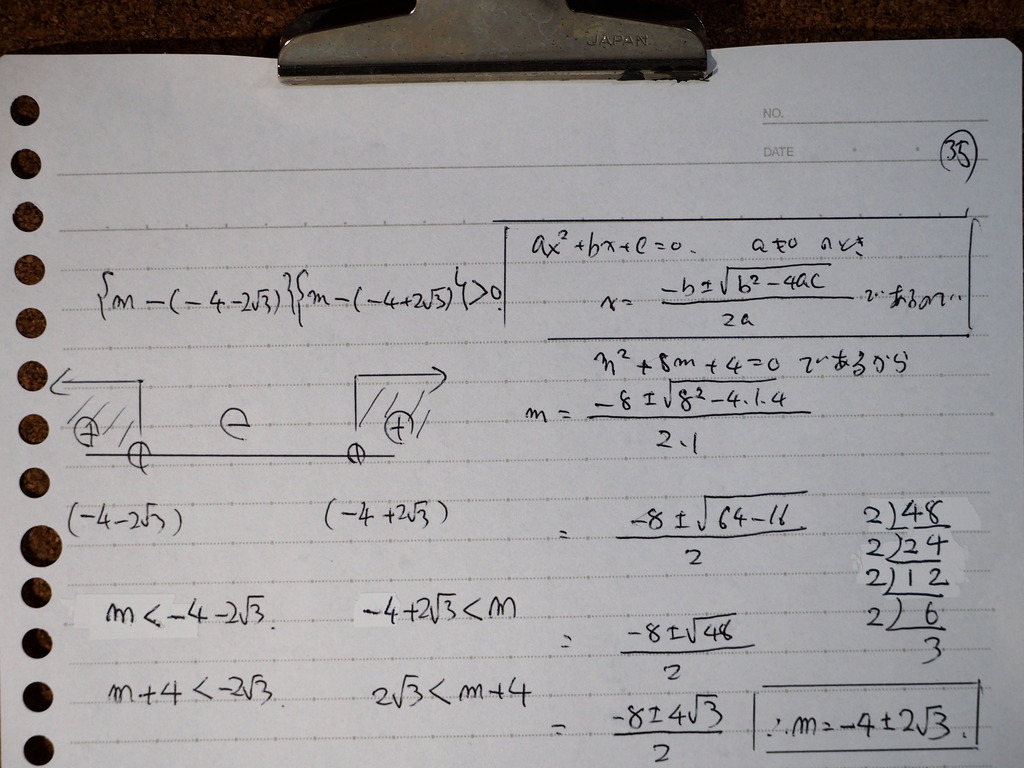 JAPAN
NO.
DATE
35
ax²+bx+c=0. a≠0 のとき
{m-(-4-2√3)}{m-(-4+2√3)}>0.
x= (-b±√(b²-4ac))/(2a) であるので..
m²+8m+4=0 であるから
m = (-8±√(8²-4・1・4))/(2・1)
⊕ ⊖ ⊕
(-4-2√3) (-4+2√3)
= (-8±√(64-16))/2
2)48
2)24
2)12
2)6
3
m<-4-2√3. -4+2√3<m
= (-8±√48)/2
m+4<-2√3. 2√3<m+4
= (-8±4√3)/2
∴m=-4±2√3.